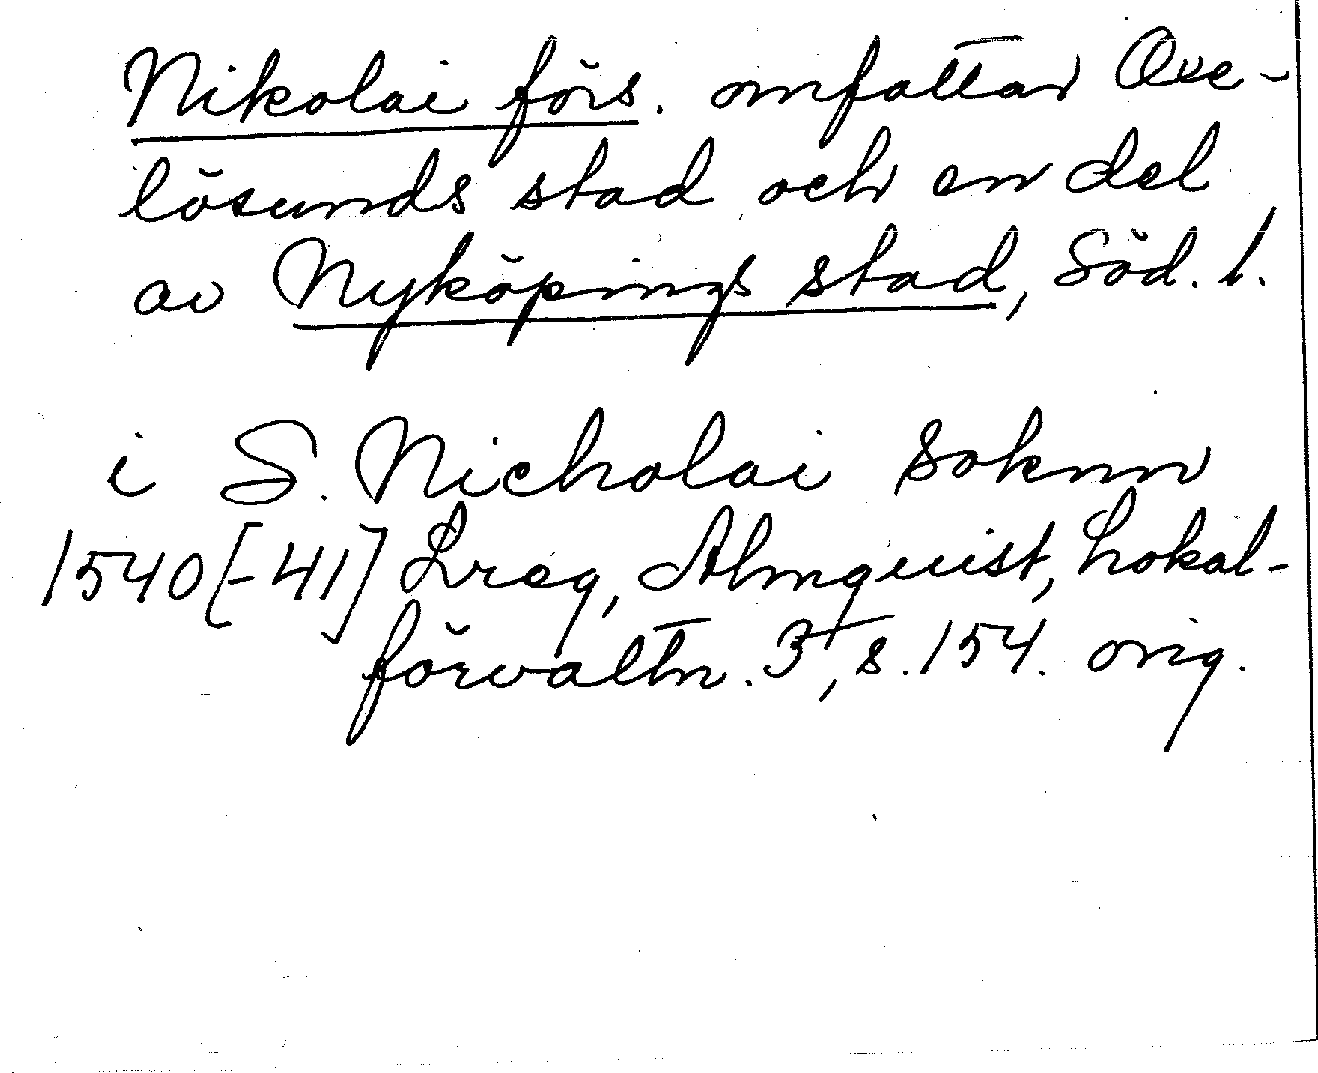 Nikolai förs. omfattar Oxe-
lösunds stad och en del
av Nyköpings stad, Söd. l.
i S. Nicholai soknn
1540[-41] Lreg, Almquist, Lokal-
förvaltn. 3, s. 154. orig.